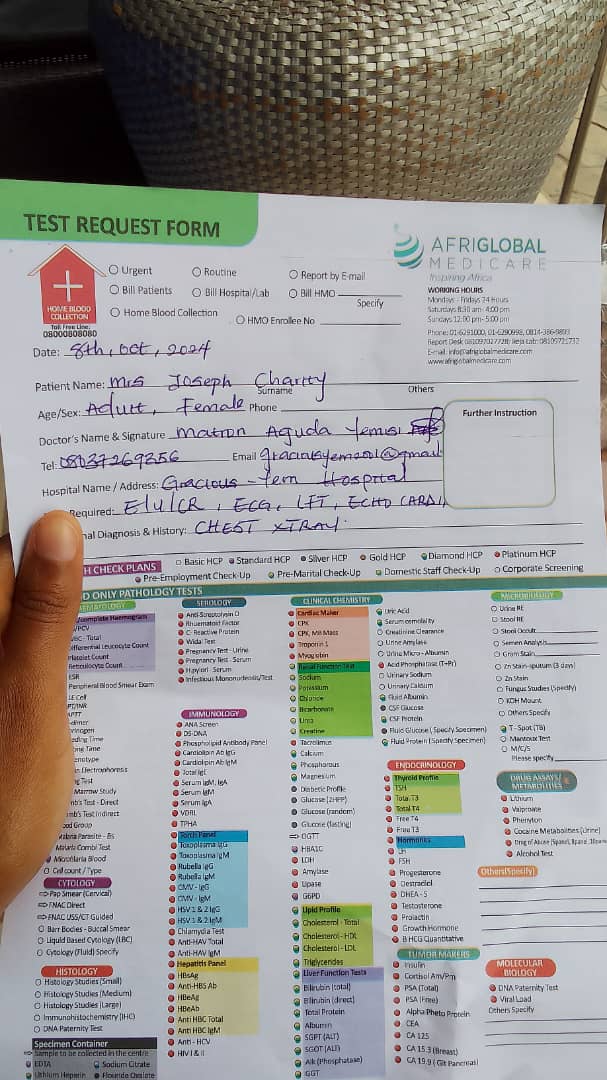 TEST REQUEST FORM
AFRIGLOBAL
MEDICARE
Inspiring Africa
HOME BLOOD
COLLECTION
Toll Free Line:
08000808080
Urgent Routine Report by E-mail
Bill Patients Bill Hospital/Lab Bill HMO
Specify
Home Blood Collection HMO Enrollee No
WORKING HOURS
Mondays - Fridays 24 Hours
Saturdays 8:30 am - 4:00 pm
Sundays 12:00 pm - 5:00 pm
E-mail: info@afriglobalmedicare.com
www.afriglobalmedicare.com
Date: 8th, Oct, 2024
Patient Name: Mrs Joseph Charity
Surname Others
Age/Sex: Adult, Female Phone
Doctor's Name & Signature Matron Aguda Yemisi
Further Instruction
Tel: 08037269356 Email
Hospital Name / Address: Gracious-Yem Hospital
Required: E/U/CR, ECG, LFT, ECHO CARDI
nal Diagnosis & History: CHEST XTRAY.
H CHECK PLANS Basic HCP Standard HCP Silver HCP Gold HCP Diamond HCP Platinum HCP
Pre-Employment Check-Up Pre-Marital Check-Up Domestic Staff Check-Up Corporate Screening
D ONLY PATHOLOGY TESTS
HAEMATOLOGY
Complete Haemogram
PCV
WBC - Total
Differential Leucocyte Count
Platelet Count
Reticulocyte Count
ESR
Peripheral Blood Smear Exam
LE Cell
PT/INR
APTT
Malaria Combi Test
Microfilaria Blood
Cell count / Type
CYTOLOGY
Pap Smear (Cervical)
FNAC Direct
FNAC USS/CT-Guided
Barr Bodies - Buccal Smear
Liquid Based Cytology (LBC)
Cytology (Fluid) Specify
HISTOLOGY
Histology Studies (Small)
Histology Studies (Medium)
Histology Studies (Large)
Immunohistochemistry (IHC)
DNA Paternity Test
Specimen Container
Sample to be collected in the centre
EDTA Sodium Citrate
Lithium Heparin Flouride Oxalate
SEROLOGY
Anti Streptolysin O
Rheumatoid Factor
C- Reactive Protein
Widal Test
Pregnancy Test - Urine
Pregnancy Test - Serum
H.pylori - Serum
Infectious Mononucleosis/Test
IMMUNOLOGY
ANA Screen
DS-DNA
Phospholipid Antibody Panel
Cardiolipin Ab IgG
Cardiolipin Ab IgM
Total IgE
Serum IgM, IgA
Serum IgM
Serum IgA
VDRL
TPHA
Torch Panel
Toxoplasma IgG
Toxoplasma IgM
Rubella IgG
Rubella IgM
CMV - IgG
CMV - IgM
HSV 1 & 2 IgG
HSV 1 & 2 IgM
Chlamydia Test
Anti-HAV Total
Anti-HAV IgM
Hepatitis Panel
HBsAg
Anti-HBS Ab
HBeAg
HBeAb
Anti HBC Total
Anti HBC IgM
Anti - HCV
HIV I & II
CLINICAL CHEMISTRY
Cardiac Maker
CPK
CPK, MB Mass
Troponin I
Myoglobin
Renal Function Test
Sodium
Potassium
Chloride
Bicarbonate
Urea
Creatine
Tacrolimus
Calcium
Phosphorous
Magnesium
Diabetic Profile
Glucose (2HPP)
Glucose (random)
Glucose (fasting)
OGTT
HBA1C
LDH
Amylase
Lipase
G6PD
Lipid Profile
Cholesterol - Total
Cholesterol - HDL
Cholesterol - LDL
Triglycerides
Liver Function Tests
Bilirubin (total)
Bilirubin (direct)
Total Protein
Albumin
SGPT (ALT)
SGOT (ALT)
Alk (Phosphatase)
GGT
Uric Acid
Serum osmolality
Creatinine Clearance
Urine Amylase
Urine Micro - Albumin
Acid Phosphatase (T+Pr)
Urinary Sodium
Urinary Calcium
Fluid Albumin
CSF Glucose
CSF Protein
Fluid Glucose ( Specify Specimen)
Fluid Protein ( Specify Specimen)
ENDOCRINOLOGY
Thyroid Profile
TSH
Total T3
Total T4
Free T4
Free T3
Hormones
LH
FSH
Progesterone
Oestradiol
DHEA - S
Testosterone
Prolactin
Growth Hormone
B HCG Quantitative
TUMOR MAKERS
Insulin
Cortisol Am/Pm
PSA (Total)
PSA (Free)
Alpha Pheto Protein
CEA
CA 125
CA 15.3 (Breast)
CA 19.9 ( Git Pancreas)
MICROBIOLOGY
Urine RE
Stool RE
Stool Occult
Semen Analysis
Gram Stain
Zn Stain-Sputum (3 days)
Zn Stain
Fungus Studies (Specify)
KOH Mount
Others Specify
T - Spot (TB)
Mantoux Test
M/C/S
Please specify
DRUG ASSAYS/
METABOLITIES
Lithium
Valproate
Phenyton
Cocaine Metabolities (Urine)
Alcohol Test
Others(Specify)
MOLECULAR
BIOLOGY
DNA Paternity Test
Viral Load
Others Specify